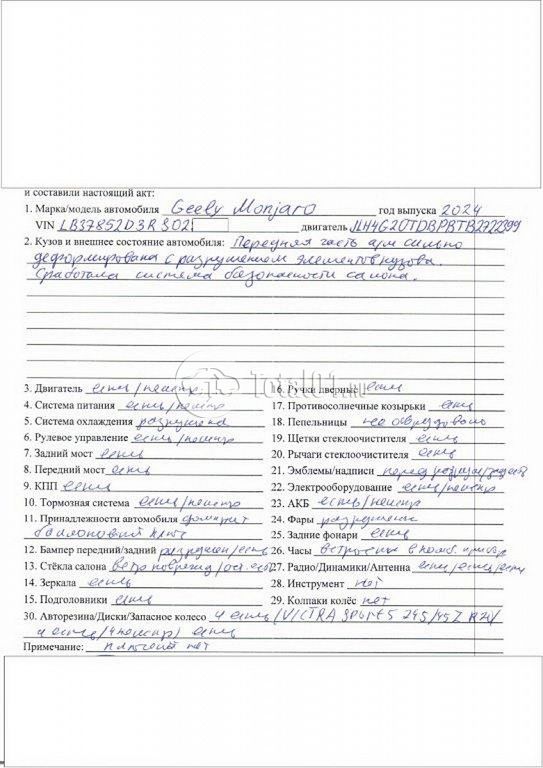 и составили настоящий акт:
1. Марка/модель автомобиля Geely Monjaro год выпуска 2024
VIN LB37852D3RS02 двигатель JLH4G20TDBPBTB2722399
2. Кузов и внешнее состояние автомобиля: Передняя часть а/м сильно
деформирована с разрушением элементов кузова.
Сработала система безопасности салона.
Total01.ru
3. Двигатель есть/неиспр 16. Ручки дверные есть
4. Система питания есть/неиспр 17. Противосолнечные козырьки есть
5. Система охлаждения разрушена 18. Пепельницы не оборудовано
6. Рулевое управление есть/неиспр 19. Щетки стеклоочистителя есть
7. Задний мост есть 20. Рычаги стеклоочистителя есть
8. Передний мост есть 21. Эмблемы/надписи
9. КПП есть 22. Электрооборудование есть/неиспр
10. Тормозная система есть/неиспр 23. АКБ есть/неиспр
11. Принадлежности автомобиля домкрат 24. Фары разрушены
баллонный ключ 25. Задние фонари есть
12. Бампер передний/задний разрушен/есть 26. Часы встроены в комб. прибор
13. Стёкла салона ветр поврежд/ост. есть 27. Радио/Динамики/Антенна есть/есть/есть
14. Зеркала есть 28. Инструмент нет
15. Подголовники есть 29. Колпаки колёс нет
30. Авторезина/Диски/Запасное колесо 4 есть/VICTRA SPORT 5 245/45 Z R20/
4 есть/ есть
Примечание: нет